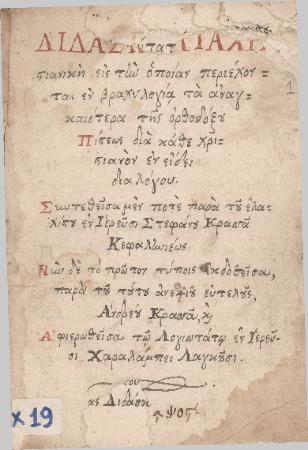 τιανικὴ εἰς τὴν ὁποίαν περιέχον-
ται ἐν βραχυλογίᾳ τὰ ἀναγ-
καιότερα τῆς ὀρθοδόξου
Πίστεως διὰ κάθε χρι-
στιανὸν ἐν εἴδει
διαλόγου.
1
μὲν ποτὲ παρὰ τοῦ ἐλα-
χίστου ἐν Ἱερεῦσι Στεφάνου Κρασᾶ
Κεφαλληνέως.
Νῦν δὲ τὸ πρῶτον τύποις ἐκδοθεῖσα,
παρὰ τοῦ τούτου ἀνεψιοῦ εὐτελοῦς,
Ἀνδρέου Κρασᾶ, ϗ
Ἀφιερωθεῖσα τῷ Λογιωτάτῳ ἐν Ἱερεῦ-
σι Χαραλάμπει Λαγκούσι.
x 19